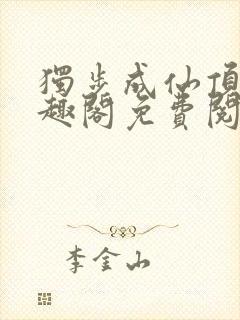 獨步成仙頂
趣閣免費閱
李金山